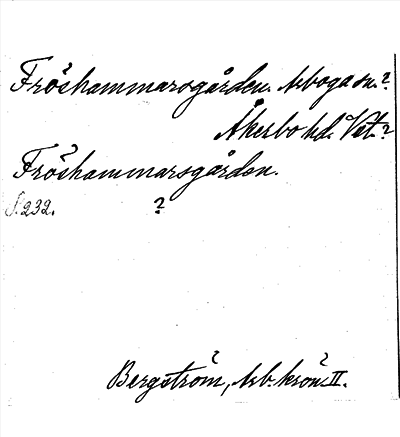 Fröshammarsgården. Arboga sn.?
Åkerbo hd. Vst.?
Fröshammarsgården.
S. 232. ?
Bergström, Arb. krön. II.